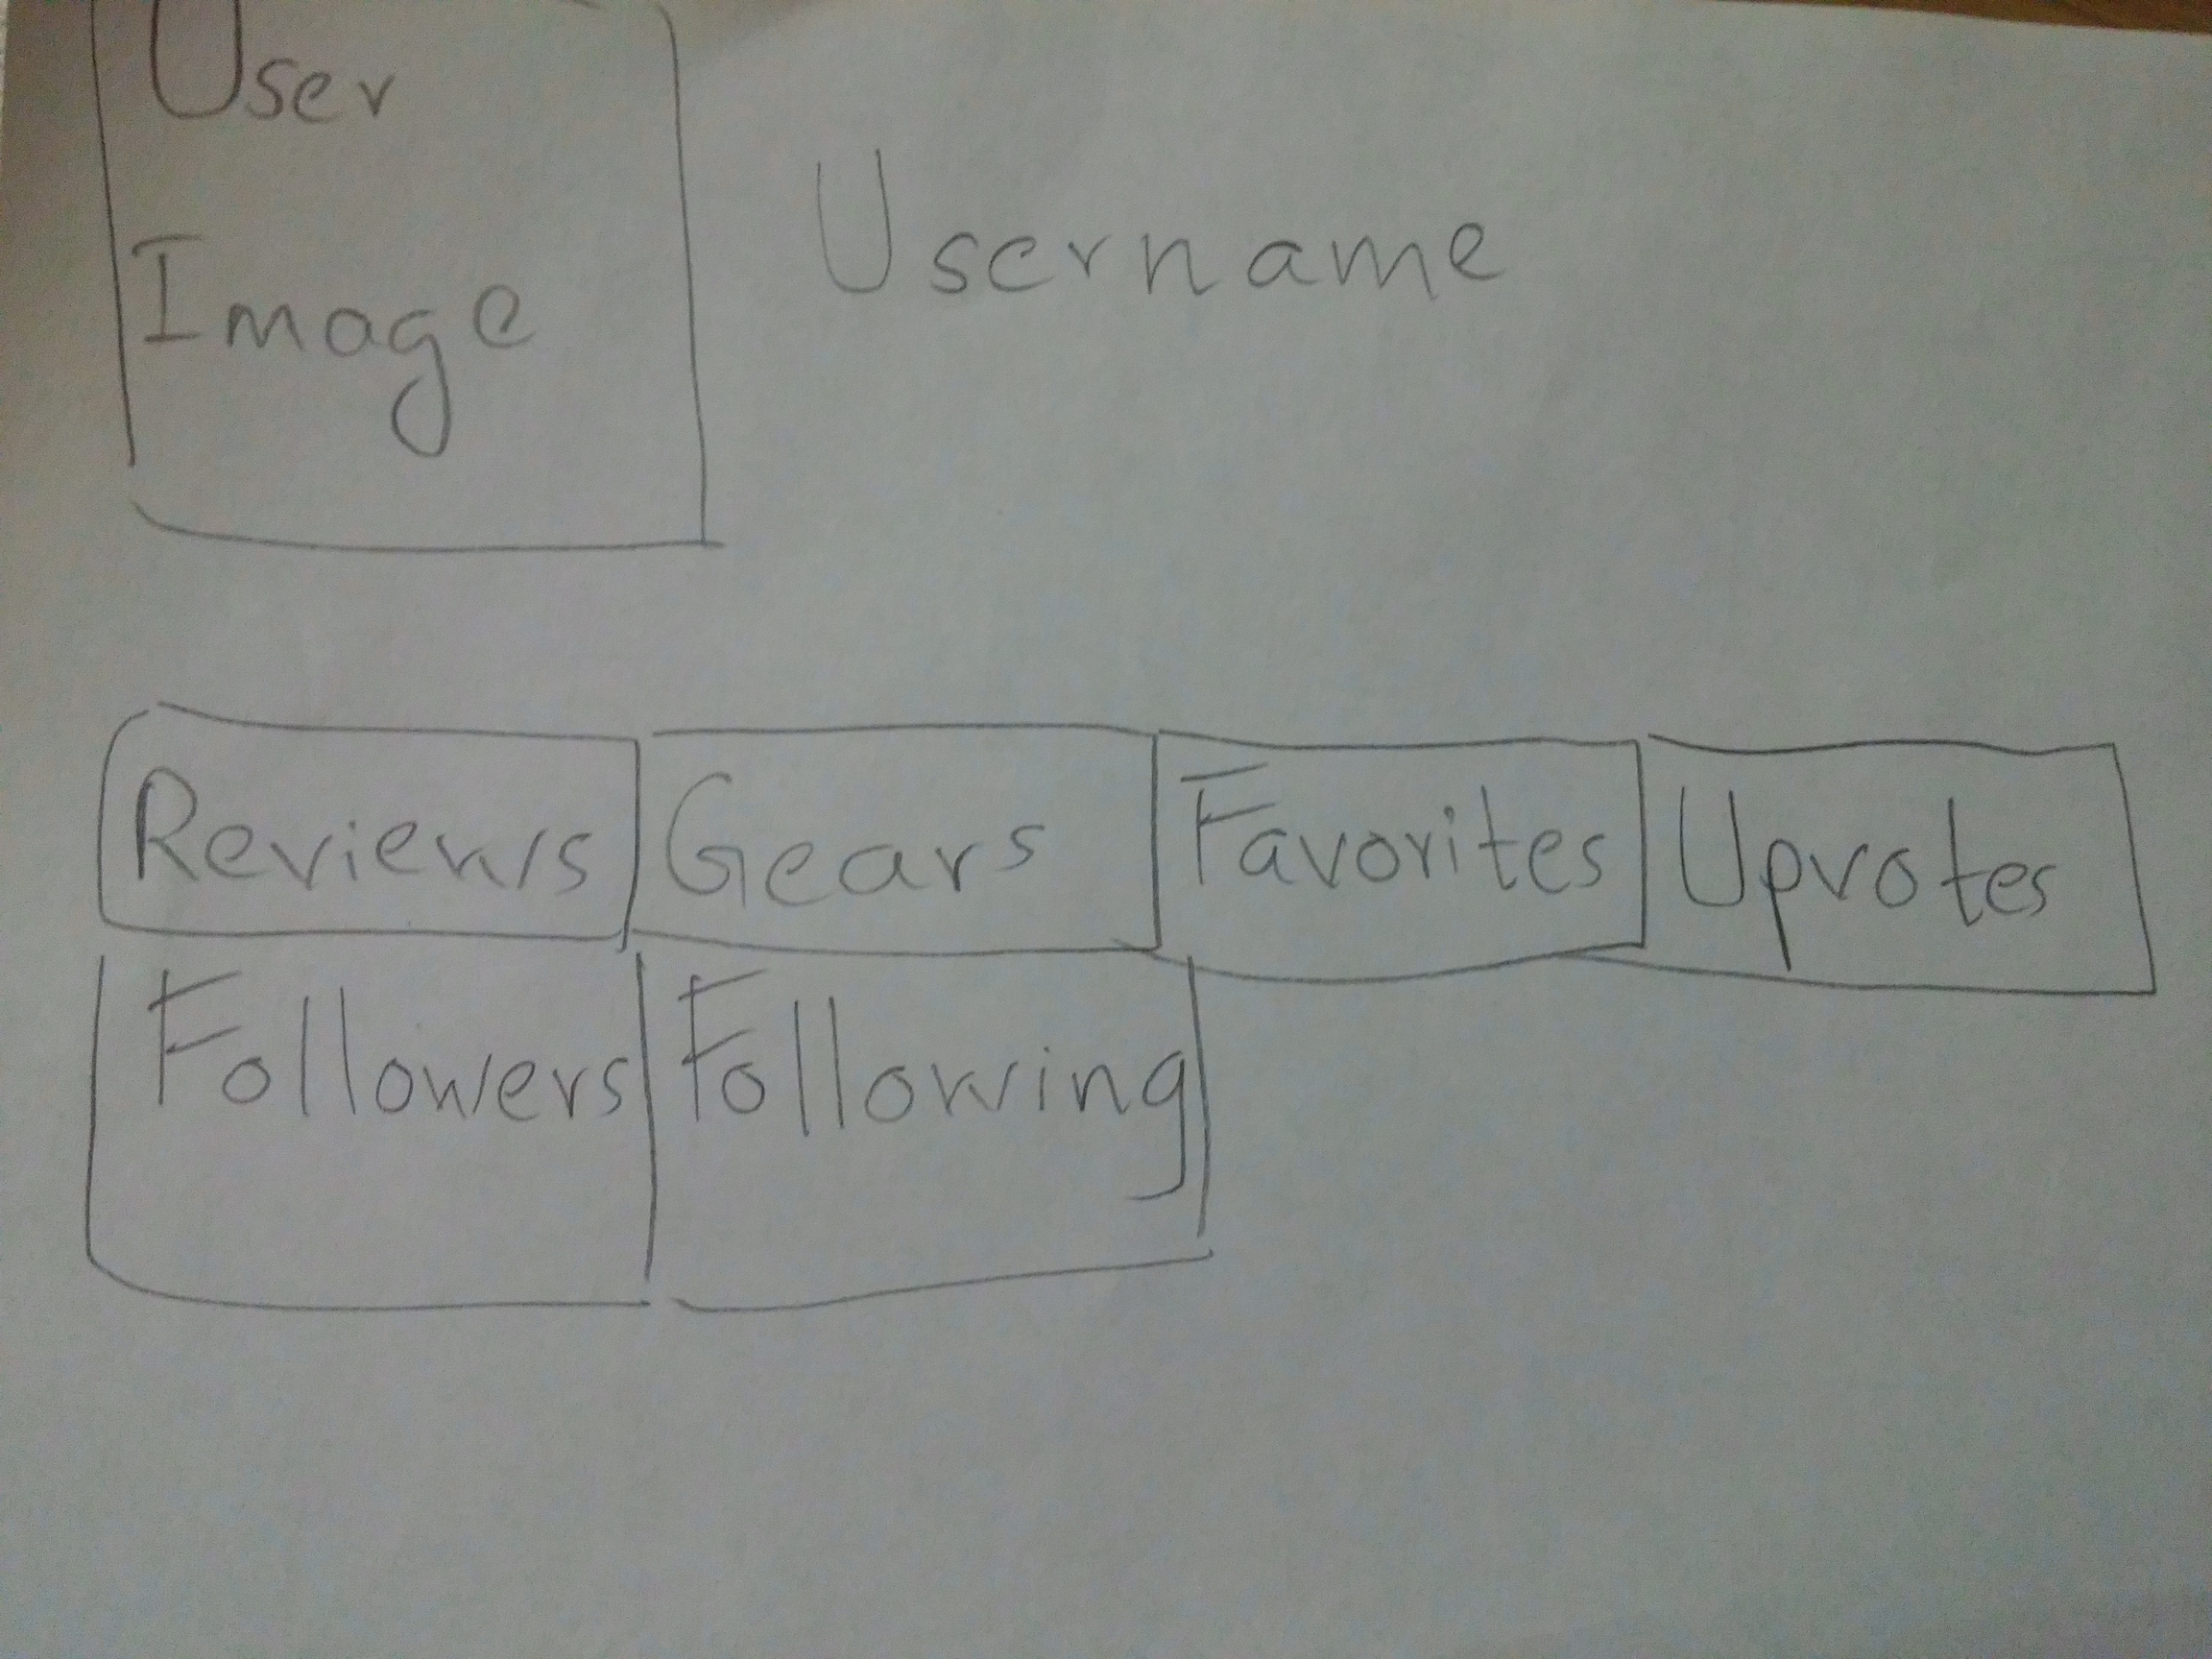 User
Image
Username
Reviews Gears Favorites Upvotes
Followers Following